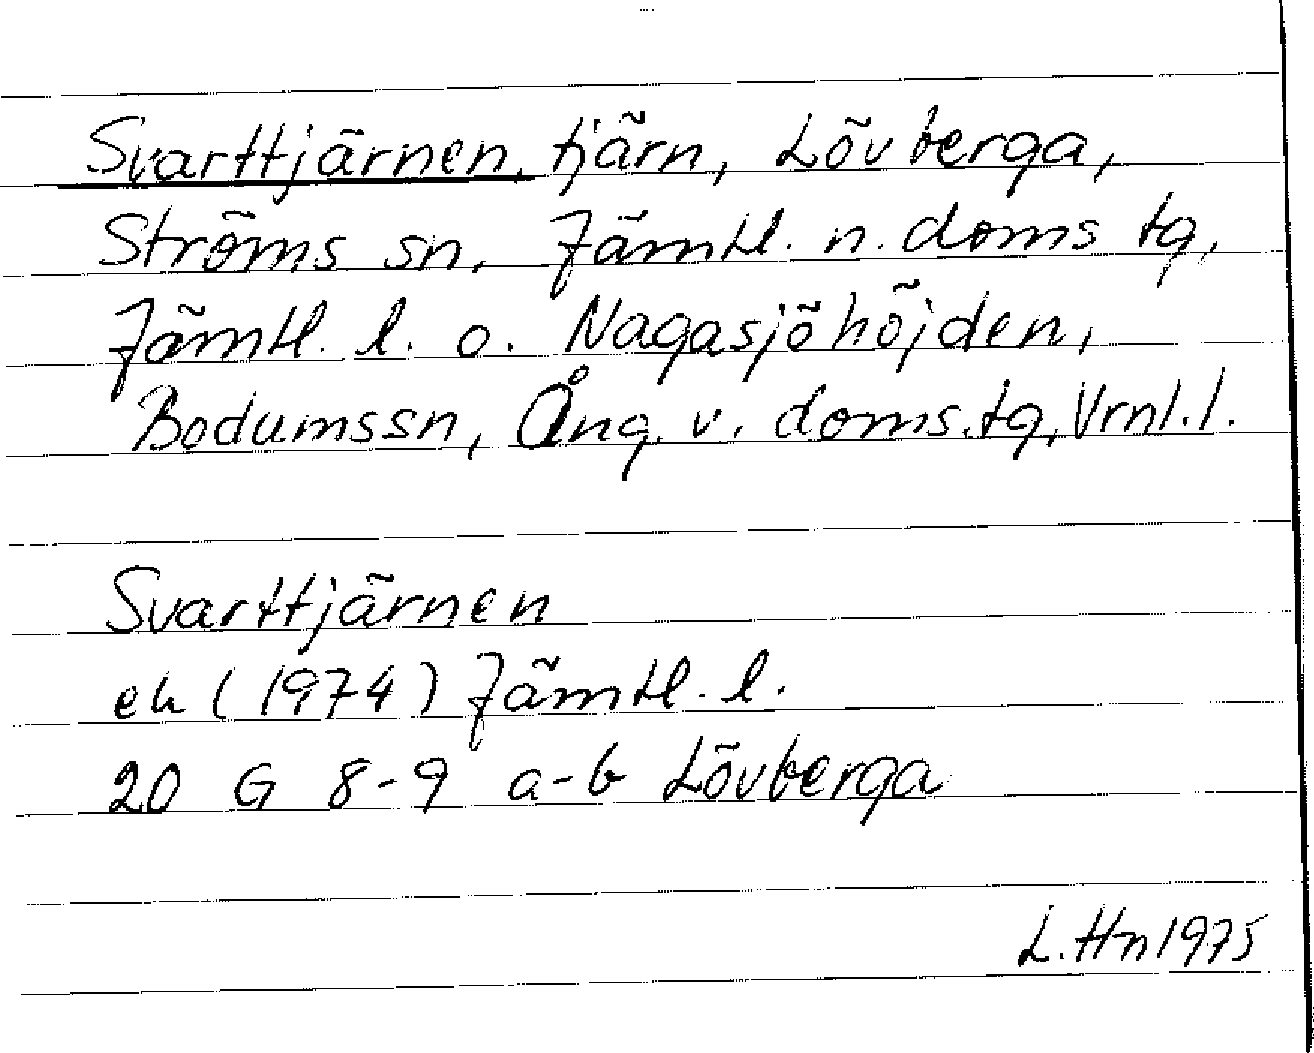 Svarttjärnen, tjärn, Lövberga,
Ströms sn, Jämtl. n. doms tg,
Jämtl. l. o. Nagasjöhöjden,
Bodumssn, Ång. v. doms.tg, Vrnl.l.
Svarttjärnen
ek (1974) Jämtl. l.
20 G 8-9 a-b Lövberga
L.Hn 1975